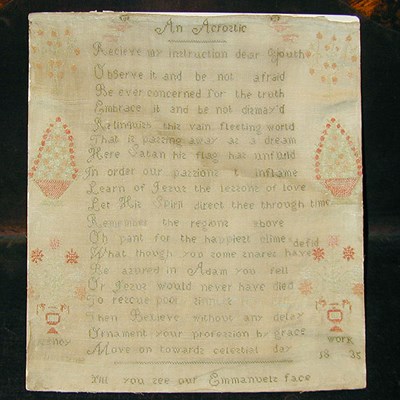 An Acrostic
Recieve my instruction dear Youth
Observe it and be not afraid
Be ever concerned for the truth
Embrace it and be not dismay'd
Relinquish this vain fleeting world
That is passing away as a dream
Here Satan his flag has unfurld
In order our passions t inflame
Learn of Jesus the lessons of love
Let His Spirit direct thee through time
Remember the regions above
Oh pant for the happiest clime
What though you some snares have defid
Be assured in Adam you fell
Or Jesus would never have died
To rescue poor
Then Believe without any delay
Ornament your profession by grace
work
Move on towards celestial day
18 35
Till you see our Emmanuels face